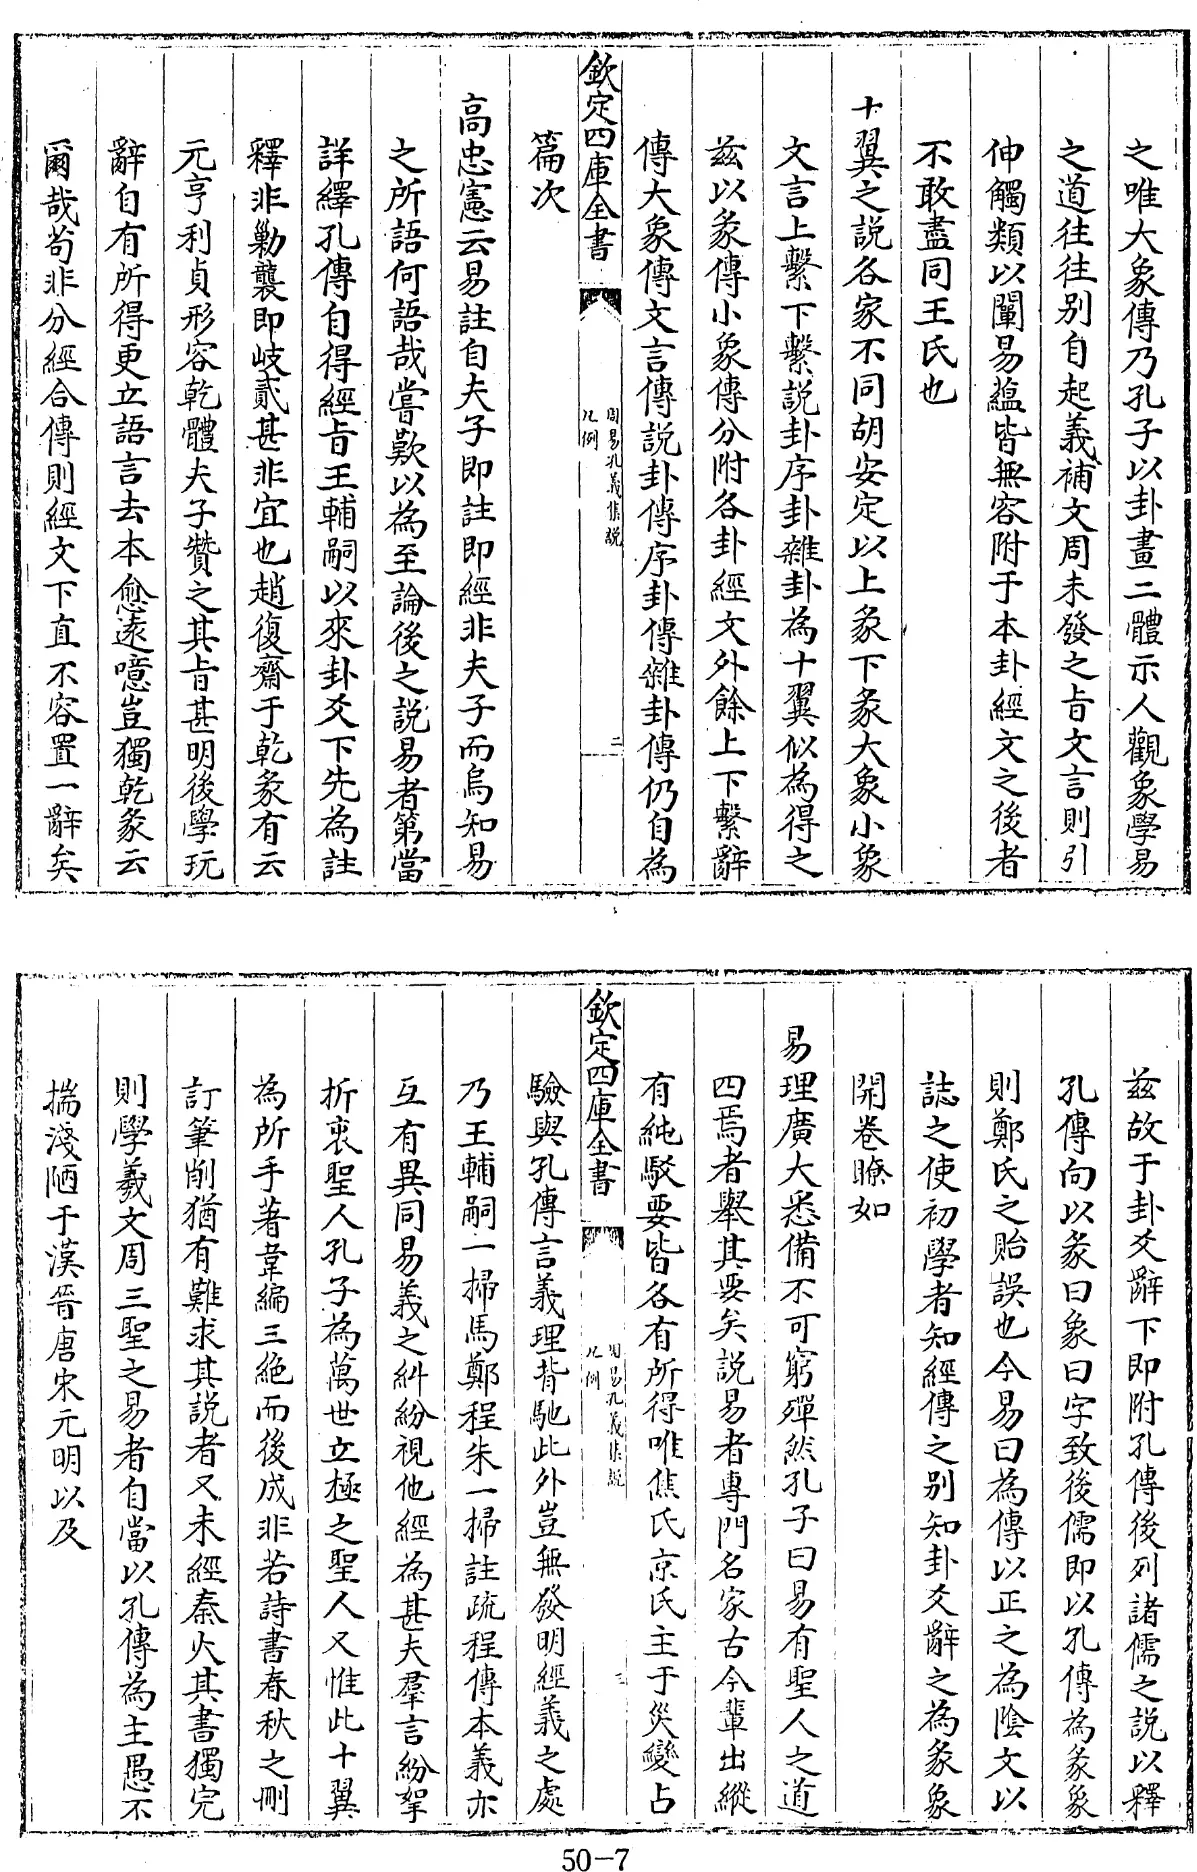 之唯大象傳乃孔子以卦畫二體示人觀象學易
之道往往别自起義補文周未發之旨文言則引
伸觸類以闡易蘊皆無容附于本卦經文之後者
不敢盡同王氏也
十翼之說各家不同胡安定以上彖下彖大象小象
文言上繫下繫說卦序卦雜卦為十翼似為得之
兹以彖傳小象傳分附各卦經文外餘上下繫辭
傳大象傳文言傳說卦傳序卦傳雜卦傳仍自為
欽定四庫全書
周易孔義集說
凡例
二
篇次
高忠憲云易註自夫子即註即經非夫子而烏知易
之所語何語哉嘗歎以為至論後之說易者第當
詳繹孔傳自得經旨王輔嗣以來卦爻下先為註
釋非勦襲即歧貳甚非宜也趙復齋于乾彖有云
元亨利貞形容乾體夫子贊之其旨甚明後學玩
辭自有所得更立語言去本愈遠噫豈獨乾彖云
爾哉茍非分經合傳則經文下直不容置一辭矣
兹故于卦爻辭下即附孔傳後列諸儒之說以釋
孔傳向以彖曰象曰字致後儒即以孔傳為彖象
則鄭氏之貽誤也今易曰為傳以正之為陰文以
誌之使初學者知經傳之别知卦爻辭之為彖象
開卷瞭如
易理廣大悉備不可窮殫然孔子曰易有聖人之道
四焉者舉其要矣說易者專門名家古今輩出縱
有純駁要皆各有所得唯焦氏京氏主于災變占
欽定四庫全書
周易孔義集說
凡例
三
驗與孔傳言義理背馳此外豈無發明經義之處
乃王輔嗣一掃馬鄭程朱一掃註疏程傳本義亦
互有異同易義之糾紛視他經為甚夫羣言紛挐
折衷聖人孔子為萬世立極之聖人又惟此十翼
為所手著韋編三絶而後成非若詩書春秋之刪
訂筆削猶有難求其說者又未經秦火其書獨完
則學羲文周三聖之易者自當以孔傳為主愚不
揣淺陋于漢晉唐宋元明以及
50-7